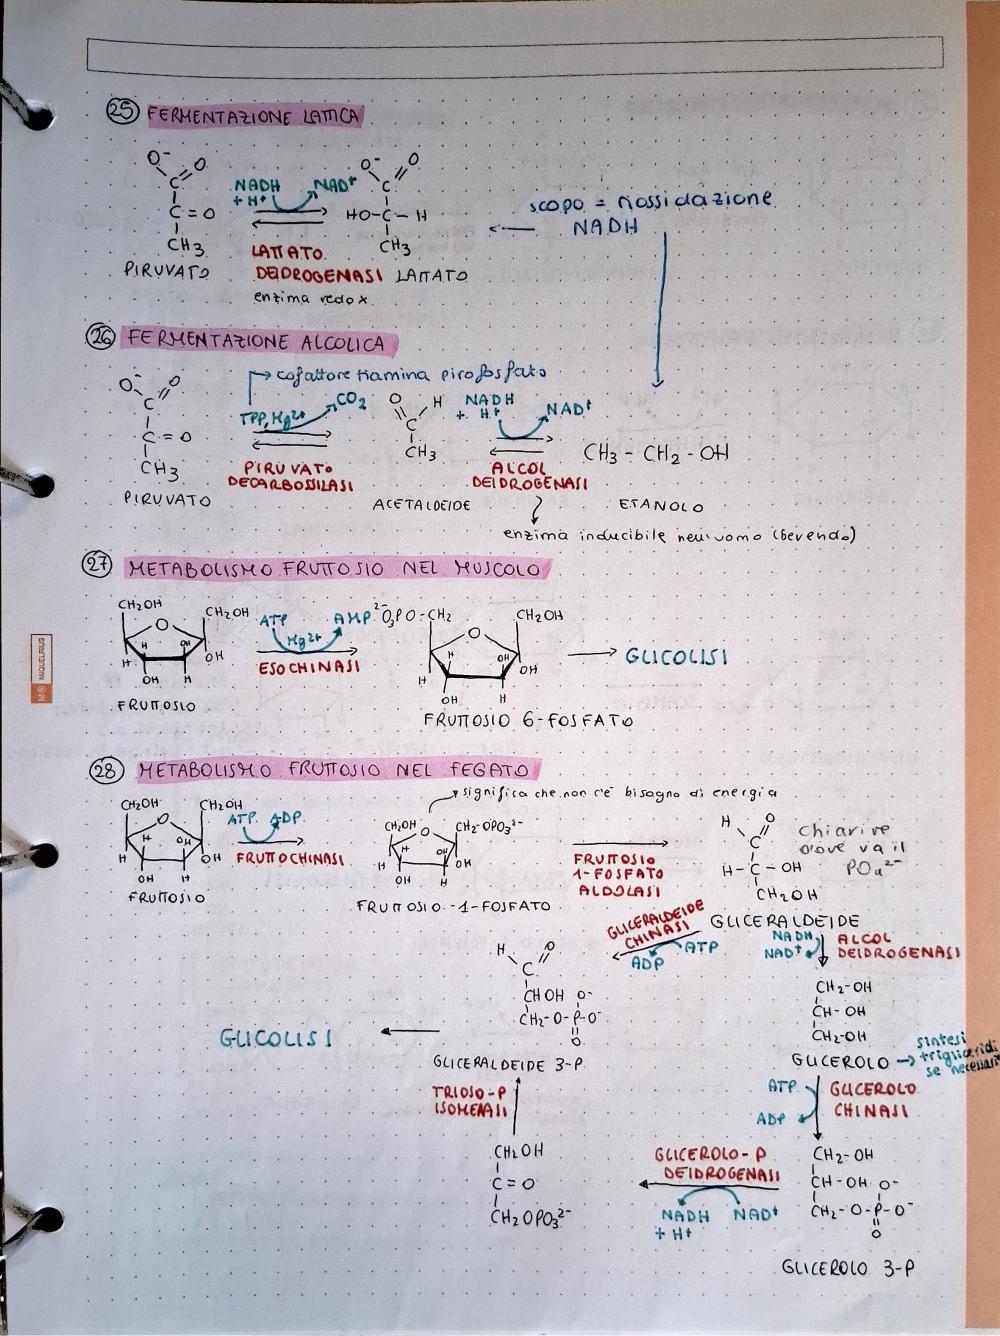 25 FERMENTAZIONE LATTICA
O⁻ O
C
C = O
CH₃
PIRUVATO
NADH + H⁺ NAD⁺
LATTATO DEIDROGENASI
enzima redox
O⁻ O
C
HO-C-H
CH₃
LATTATO
scopo = riossidazione
NADH
26 FERMENTAZIONE ALCOLICA
cofattore tiamina pirofosfato
O⁻ O
C
C = O
CH₃
PIRUVATO
TPP, Mg²⁺ CO₂
PIRUVATO
DECARBOSSILASI
O H
C
CH₃
ACETALDEIDE
NADH + H⁺ NAD⁺
ALCOL
DEIDROGENASI
CH₃ - CH₂ - OH
ETANOLO
enzima inducibile nell'uomo (bevendo)
27 METABOLISMO FRUTTOSIO NEL MUSCOLO
CH₂OH CH₂OH
O
H OH
H OH
OH H
FRUTTOSIO
ATP AMP
Mg²⁺
ESOCHINASI
²⁻O₃PO-CH₂ CH₂OH
O
H OH
H OH
OH H
FRUTTOSIO 6-FOSFATO
GLICOLISI
28 METABOLISMO FRUTTOSIO NEL FEGATO
significa che non c'è bisogno di energia
CH₂OH CH₂OH
O
H OH
H OH
OH H
FRUTTOSIO
ATP ADP
FRUTTOCHINASI
CH₂OH CH₂-OPO₃²⁻
O
H OH
H OH
OH H
FRUTTOSIO-1-FOSFATO
FRUTTOSIO
1-FOSFATO
ALDOLASI
H O
C
H-C-OH
CH₂OH
GLICERALDEIDE
chiarire
dove va il
PO₄²⁻
GLICERALDEIDE
CHINASI
ATP
ADP
NADH
NAD⁺
ALCOL
DEIDROGENASI
H O
C
CHOH O⁻
CH₂-O-P-O⁻
O
GLICERALDEIDE 3-P
GLICOLISI
CH₂-OH
CH-OH
CH₂-OH
GLICEROLO
sintesi
trigliceridi
se necessari
ATP
ADP
GLICEROLO
CHINASI
TRIOSO-P
ISOMERASI
CH₂OH
C=O
CH₂OPO₃²⁻
GLICEROLO-P
DEIDROGENASI
NADH NAD⁺
+ H⁺
CH₂-OH
CH-OH O⁻
CH₂-O-P-O⁻
O
GLICEROLO 3-P
MIQUELRIUS